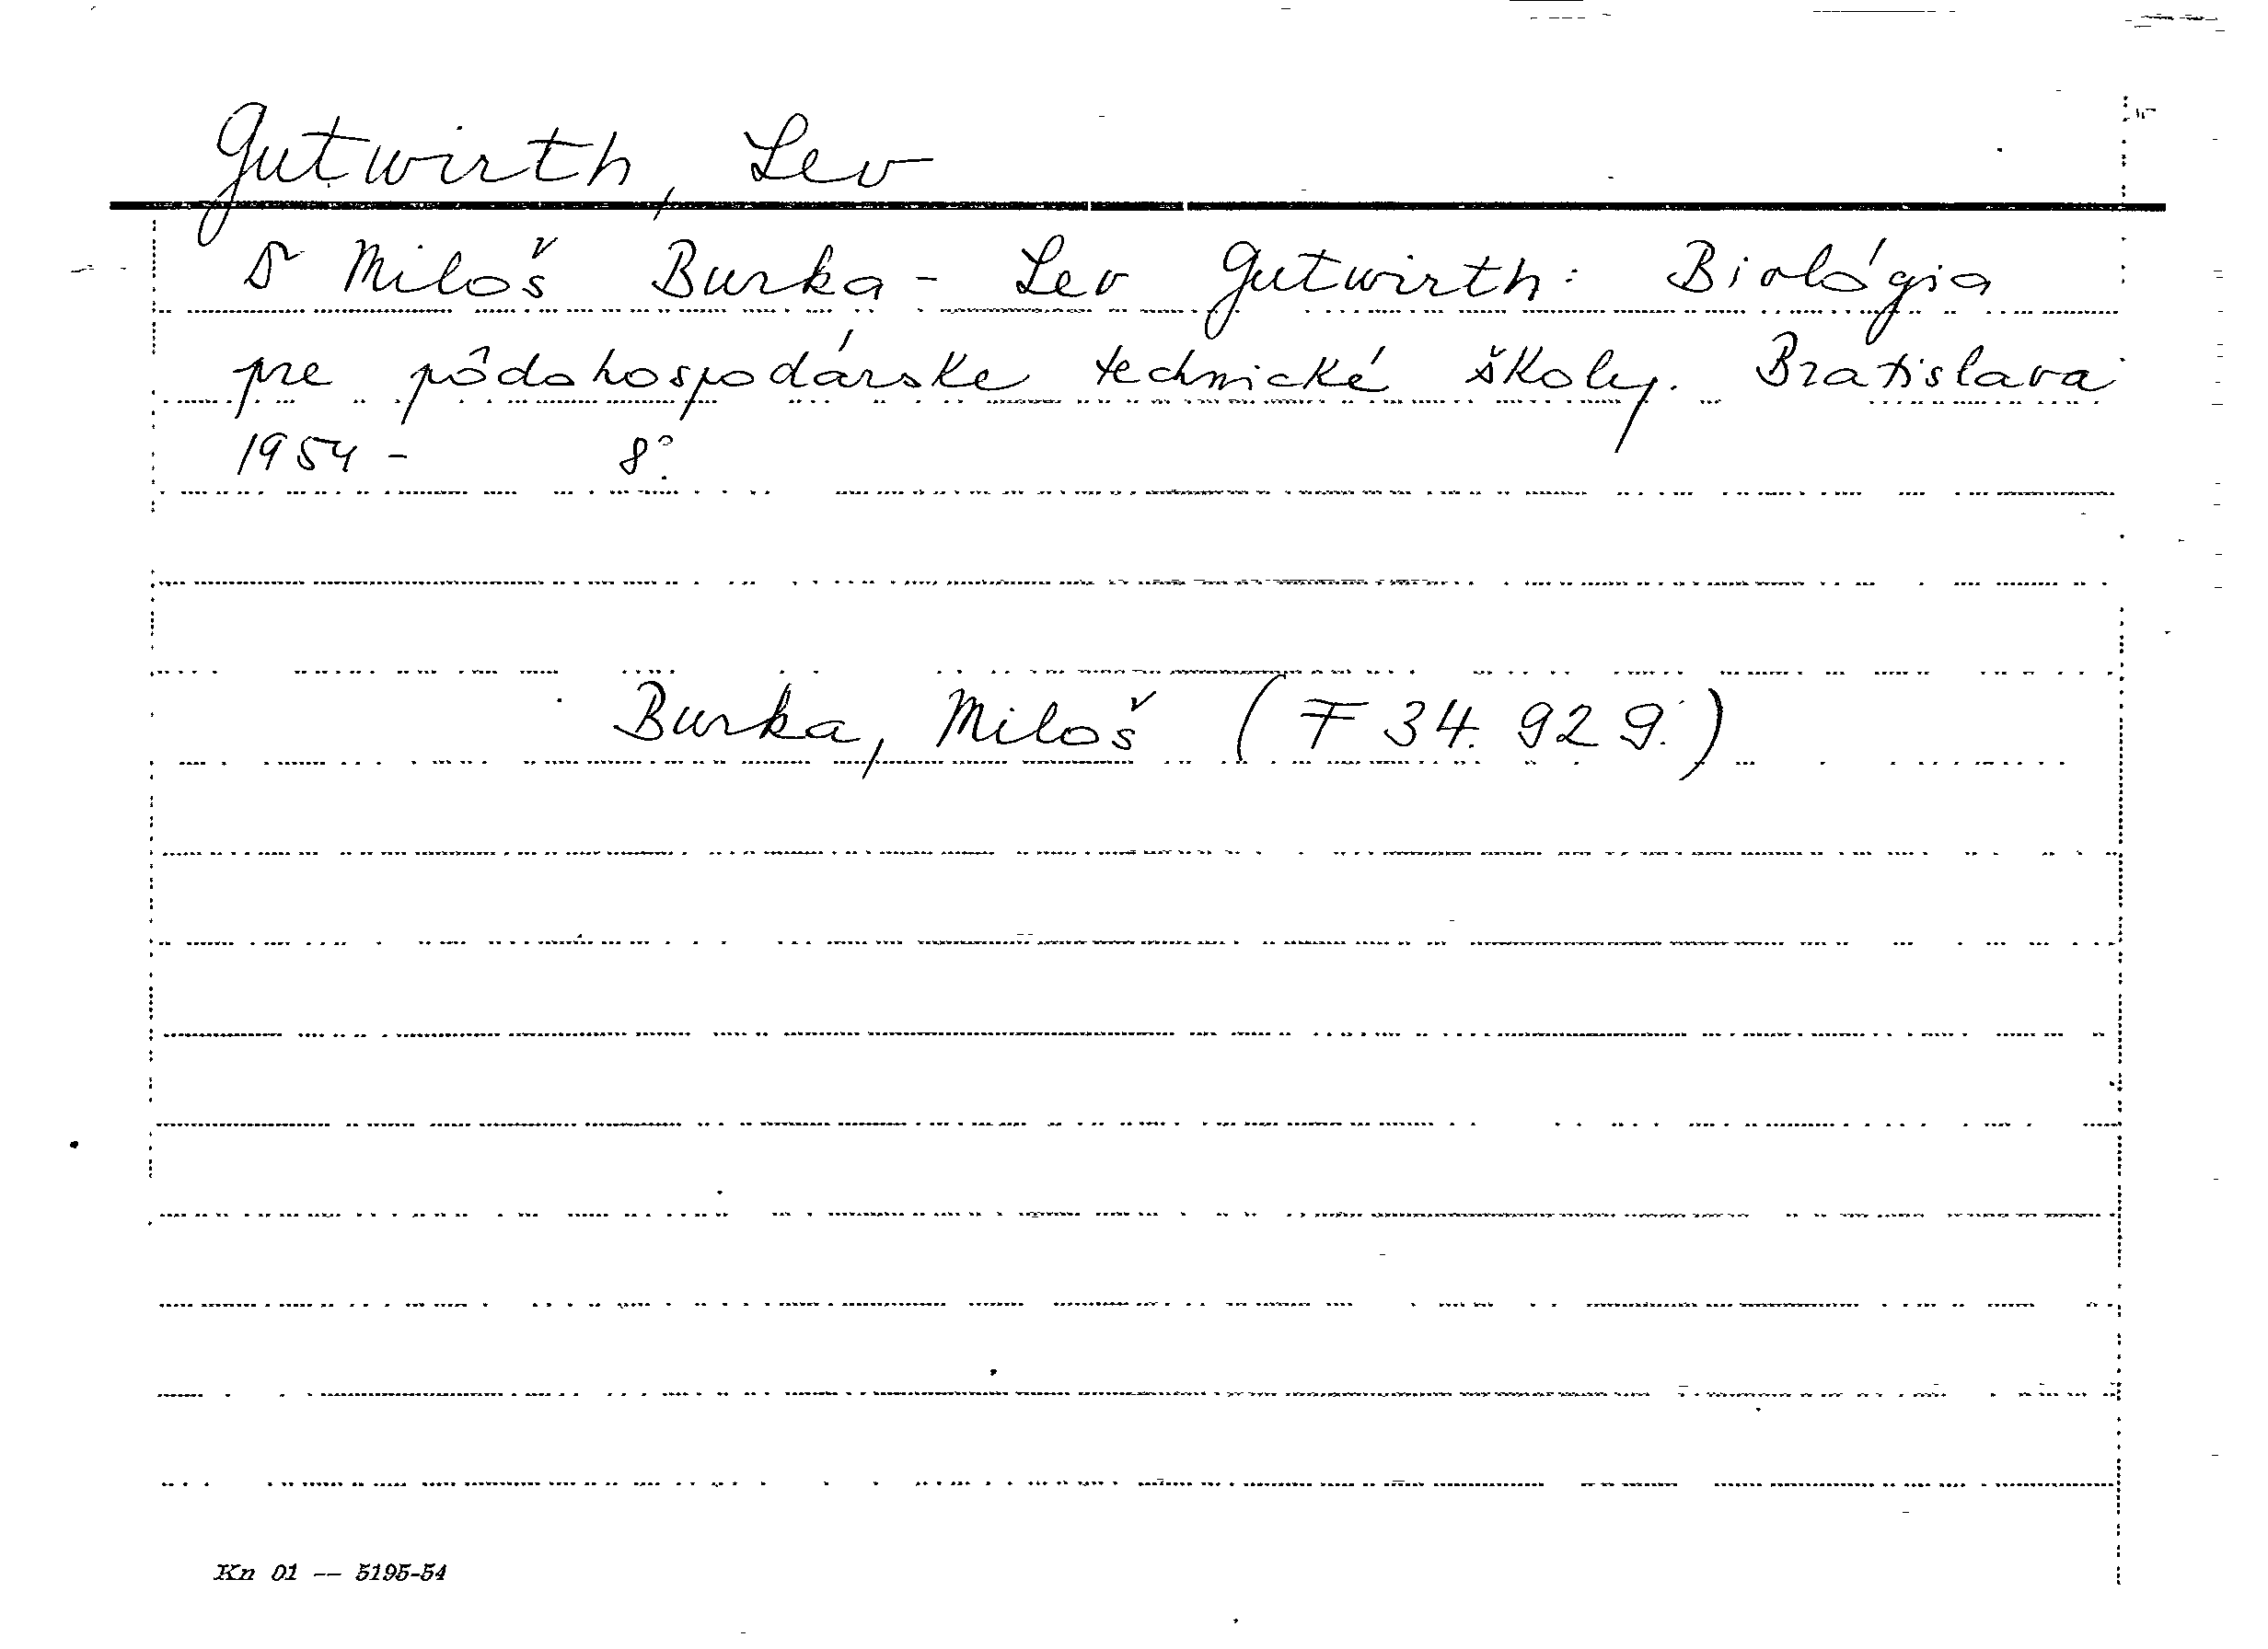 Gutwirth, Lev
Dr Miloš Burka - Lev Gutwirth: Biológia
pre pôdohospodárske technické školy. Bratislava
1954 - 8°.
Burka, Miloš (F 34.929.)
Kn 01 -- 5195-54